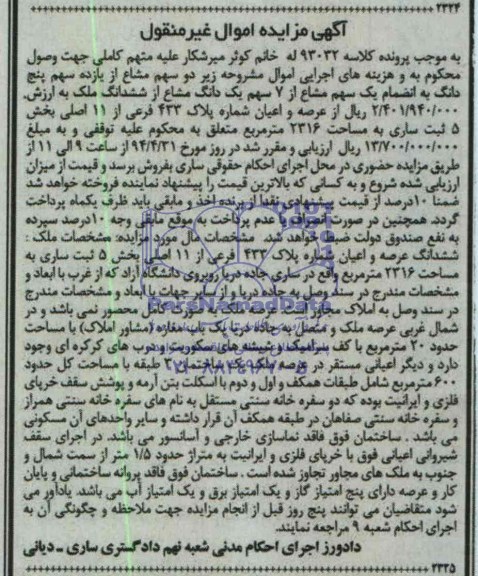 ۲۳۲۴
آگهی مزایده اموال غیرمنقول
به موجب پرونده کلاسه ۹۳۰۳۲ له خانم کوثر میرشکار علیه متهم کاملی جهت وصول
محکوم به و هزینه های اجرایی اموال مشروحه زیر دو سهم مشاع از یازده سهم پنج
دانگ به انضمام یک سهم مشاع از ۷ سهم یک دانگ مشاع از ششدانگ ملک به ارزش
۲/۴۰۱/۹۴۰/۰۰۰ ریال از عرصه و اعیان شماره پلاک ۴۳۳ فرعی از ۱۱ اصلی بخش
۵ ثبت ساری به مساحت ۲۳۱۶ مترمربع متعلق به محکوم علیه توقفی و به مبلغ
۱۳/۷۰۰/۰۰۰/۰۰۰ ریال ارزیابی و مقرر شد در روز مورخ ۹۴/۴/۳۱ از ساعت ۹ الی ۱۱ از
طریق مزایده حضوری در محل اجرای احکام حقوقی ساری بفروش برسد و قیمت از میزان
ارزیابی شده شروع و به کسانی که بالاترین قیمت را پیشنهاد نماینده فروخته خواهد شد
ضمنا ۱۰درصد از قیمت پیشنهادی نقدا از برنده اخذ و مابقی باید ظرف یکماه پرداخت
گردد. همچنین در صورت انصراف یا عدم پرداخت به موقع مابقی وجه ۱۰درصد سپرده
به نفع صندوق دولت ضبط خواهد شد. مشخصات مال مورد مزایده: مشخصات ملک :
ششدانگ عرصه و اعیان شماره پلاک ۴۳۳ فرعی از ۱۱ اصلی بخش ۵ ثبت ساری به
مساحت ۲۳۱۶ مترمربع واقع در ساری جاده دریا روبروی دانشگاه آزاد که از غرب با ابعاد و
مشخصات مندرج در سند وصل به جاده دریا و از سایر جهات با ابعاد و مشخصات مندرج
در سند وصل به املاک مجاور است. عرصه ملک به صورت کامل محصور نمی باشد و در
شمال غربی عرصه ملک و متصل به جاده دریا یک باب مغازه (مشاور املاک) با مساحت
حدود ۲۰ مترمربع با کف سرامیک و شیشه های سکوریت و درب های کرکره ای وجود
دارد و دیگر اعیانی مستقر در عرصه ملک یک ساختمان ۳ طبقه با مساحت کل حدود
۶۰۰مترمربع شامل طبقات همکف و اول و دوم با اسکلت بتن آرمه و پوشش سقف خرپای
فلزی و ایرانیت بوده که دو سفره خانه سنتی مستقل به نام های سفره خانه سنتی همراز
و سفره خانه سنتی صفاهان در طبقه همکف آن قرار داشته و سایر واحدهای آن مسکونی
می باشد . ساختمان فوق فاقد نماسازی خارجی و آسانسور می باشد. در اجرای سقف
شیروانی اعیانی فوق با خرپای فلزی و ایرانیت به متراژ حدود ۱/۵ متر از سمت شمال و
جنوب به ملک های مجاور تجاوز شده است . ساختمان فوق فاقد پروانه ساختمانی و پایان
کار و عرصه دارای پنج امتیاز گاز و یک امتیاز برق و یک امتیاز آب می باشد. یادآور می
شود متقاضیان می توانند پنج روز قبل از انجام مزایده جهت ملاحظه و چگونگی آن به
اجرای احکام شعبه ۹ مراجعه نمایند.
دادورز اجرای احکام مدنی شعبه نهم دادگستری ساری ـ دیانی
۲۳۲۵
ParsNamadData